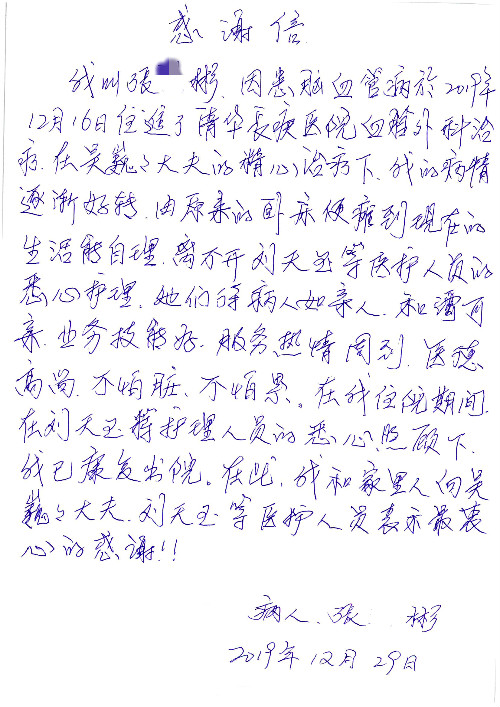 感谢信
我叫張 彬.因患脑血管病於2019年
12月16日住進了清华長庚医院血管外科治
疗.在吴巍々大夫的精心治疗下、我的病情
逐渐好转.由原来的卧床便瘫到現在的
生活能自理.离不开刘天玉等医护人员的
悉心护理.她们待病人如亲人.和谓可
亲.业务技能好.服务热情周到.医德
高尚.不怕脏、不怕累。在我住院期间.
在刘天玉等护理人员的悉心照顾下.
我已康复出院。在此.我和家里人向吴
巍々大夫.刘天玉等医护人员表示最衷
心的感谢!!
病人.張 彬
2019年12月29日